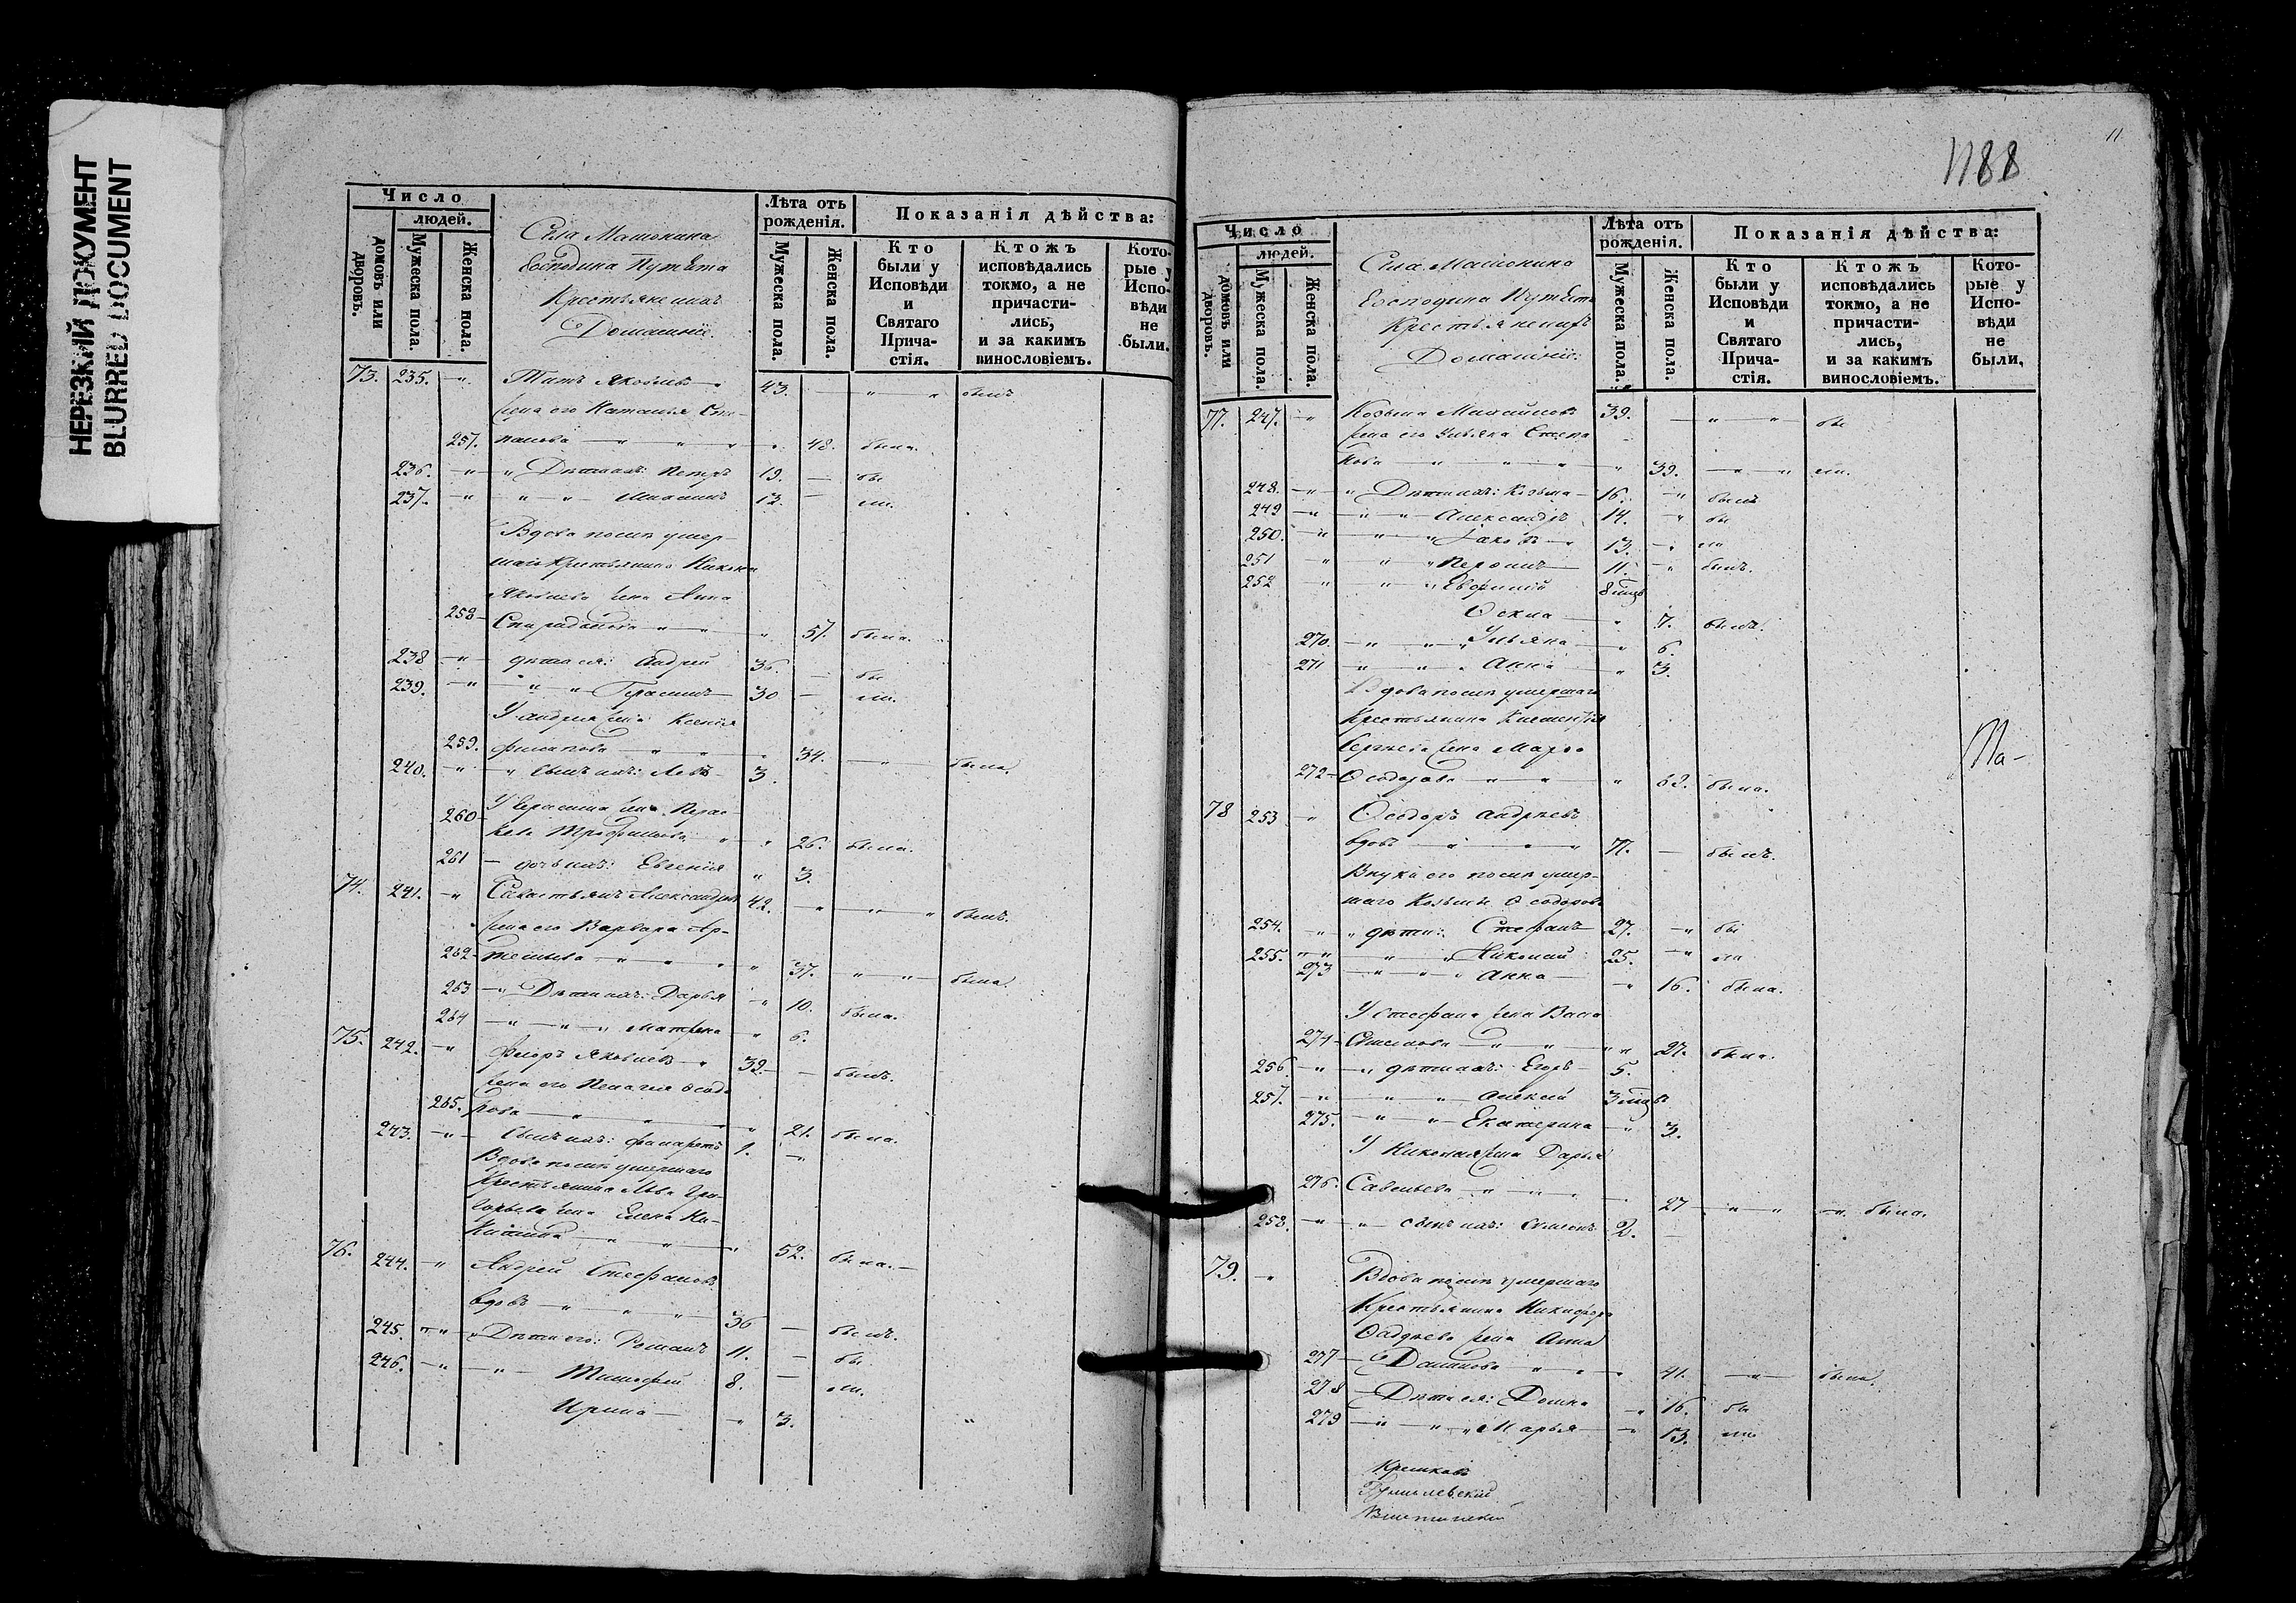 НЕРЕЗКИЙ ДОКУМЕНТ
BLURRED DOCUMENT
Число
людей.
домовъ или дворовъ.
Мужеска пола.
Женска пола.
Села Матокина
Господина Путята
Крестьяне ихъ
Домашнiе.
Лѣта отъ рожденія.
Мужеска пола.
Женска пола.
Показанія дѣйства:
Кто были у Исповѣди и Святаго Прича-стія.
Ктожъ исповѣдались токмо, а не причасти-лись, и за какимъ винословіемъ.
Кото-рые у Испо-вѣди не были.
73. 235. Титъ Яковлевъ 43. былъ
жена его Наталья Сте-
257. панова 48. была.
236. Дѣти ихъ: Петръ 19. бы
237. 12. ли.
Вдова послѣ умер-
шаго крестьянина Никона
Яковлева жена Анна
258 Спиридонова 57. была.
238 дѣти ея: Андрей 36. бы
239. Герасимъ 30 ли.
У Андрея жена Ксенія
259. Филипова 34. была.
240. сынъ ихъ: Левъ 3.
260 У Герасима жена Парас-
кева Трофимова 26. была.
261 дочь ихъ: Евгенія 3.
74. 241. Савастьянъ Александровъ 42. былъ.
жена его Варвара Ар-
262 темьева 37. была.
263 Дѣти ихъ: Дарья 10. была.
264 Матрена 6.
75. 242. Яковлевъ 32. былъ.
жена его Пелагея Ѳеодо-
265. рова 21. была.
243. сынъ ихъ: Филаретъ 1.
Вдова послѣ умершаго
Крестьянина Льва Гри-
горьева жена Елена Ни-
китина 52. была.
76. 244. Андрей Стефановъ
вдовъ 36 былъ.
245. Дѣти его: Романъ 11. бы
246. Тимофей 8. ли.
Ирина 3.
1188
11
Число
людей.
домовъ или дворовъ.
Мужеска пола.
Женска пола.
Села Матокина
Господина Путята
Крестьяне ихъ
Домашнiе:
Лѣта отъ рожденія.
Мужеска пола.
Женска пола.
Показанія дѣйства:
Кто были у Исповѣди и Святаго Прича-стія.
Ктожъ исповѣдались токмо, а не причасти-лись, и за какимъ винословіемъ.
Кото-рые у Испо-вѣди не были.
77. 247. Козьма Михайловъ 39. бы
жена его Ульяна Степа
нова 39. ли.
248. Дѣти ихъ: Козьма 16. былъ
249 Александръ 14. бы
250. Іаковъ 13. ли
251 11. былъ.
252 Евфимій 8 мцъ
Ѳекла 7. была.
270. Ульяна 6.
271 Анна 3.
Вдова послѣ умершаго
Крестьянина Климентія
Сергѣева жена Марѳа
272 Ѳеодорова 62. была.
Ma-
78 253 Ѳеодоръ Андреевъ
вдовъ 71. былъ.
Внуки его послѣ умер-
шаго Козьмы Ѳеодорова
254. дѣти: Стефанъ 27. бы
255. Николай 25. ли
273 Анна 16. была.
У Стефана жена Васса
274 27. была.
256. дѣти ихъ: Егоръ 5.
257. Алексѣй 3 мцъ
275. Екатерина 3.
У Николая жена Дарья
276. Савельева 27 была.
258. сынъ ихъ: Симеонъ 2.
79. Вдова послѣ умершаго
Крестьянина Никифора
Ѳаддѣева жена Анна
277 Данилова 41. была.
278 Дѣти ея: Домна 16. бы
279 Марья 13. ли